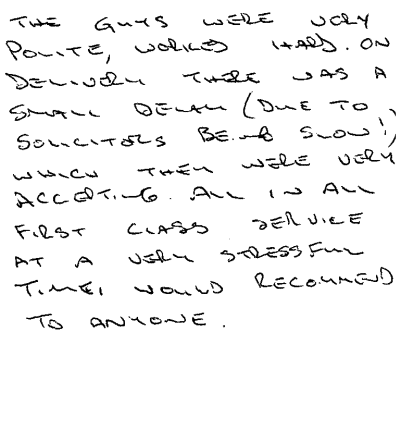 THE GUYS WERE VERY
POLITE, WORKED HARD. ON
DELIVERY THERE WAS A
SMALL DELAY (DUE TO
SOLICITORS BEING SLOW!)
WHICH THEY WERE VERY
ACCEPTING. ALL IN ALL
FIRST CLASS SERVICE
AT A VERY STRESSFUL
TIME, WOULD RECOMMEND
TO ANYONE.